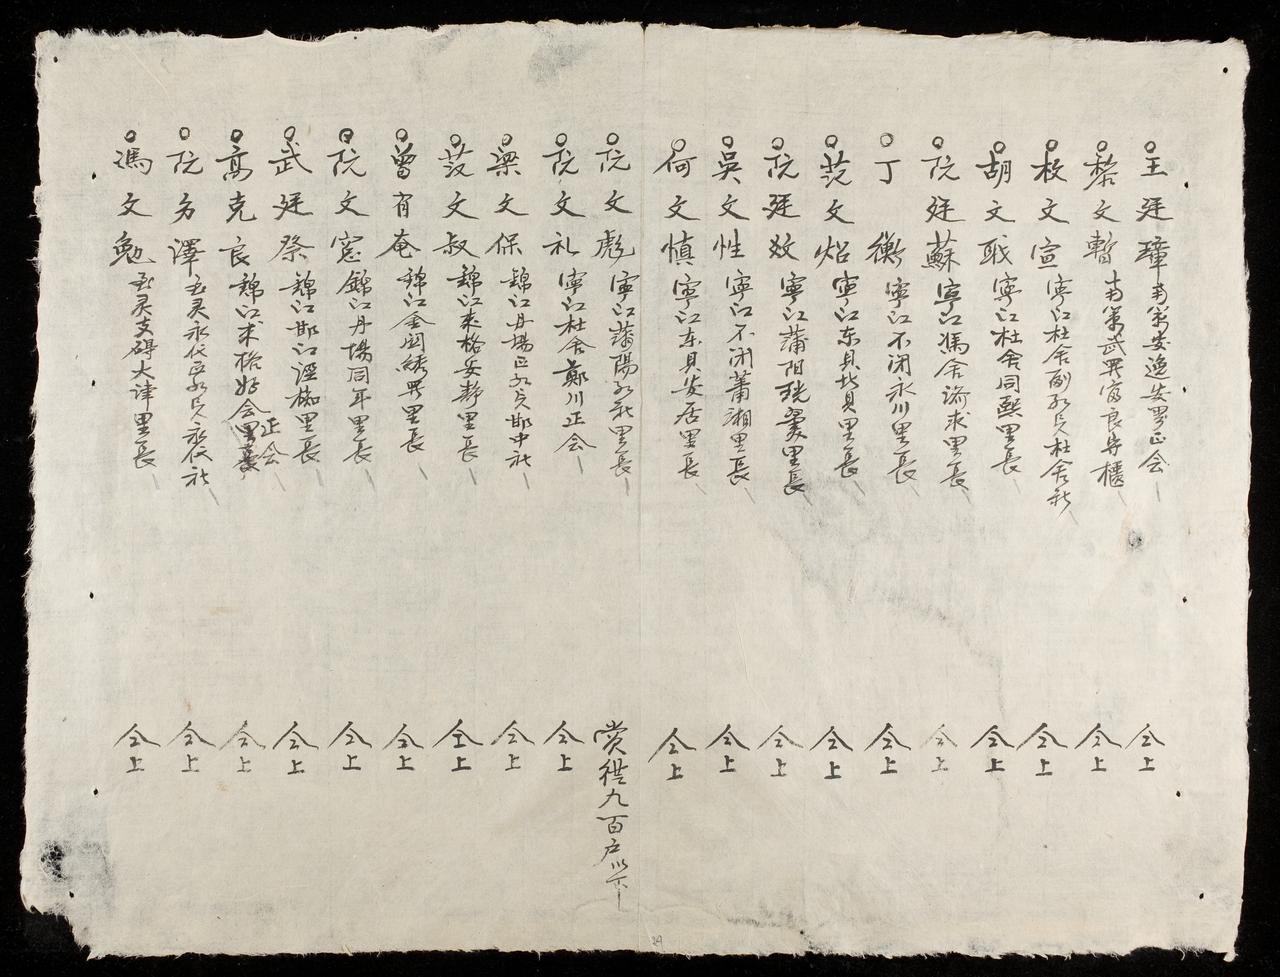 王廷璋 南策安逸安界正会 仝上
黎文暫 南策武界富良守櫃 仝上
枚文宣 寧江杜舍副 杜舍社 仝上
胡文戢 寧江杜舍同熙里長 仝上
阮廷蘇 寧江馮舍流求里長 仝上
丁衡 寧江不闭永川里長 仝上
范文炤 寧江东貝北貝里長 仝上
阮廷效 寧江蒲阳 里長 仝上
吳文性 寧江不闭蕭湘里長 仝上
何文慎 寧江东貝安居里長 仝上
阮文彪 寧江蒲陽 社里長 賞 九百户以下
阮文礼 寧江杜舍鄭川正会 仝上
梁文保 錦江丹場 邯中社 仝上
范文叔 錦江来格安静里長 仝上
曾有奄 錦江金関綉界里長 仝上
阮文窓 錦江丹場同年里長 仝上
武廷祭 錦江邯江 里長 仝上
高克良 錦江来格好会正会 仝上
阮方澤 永代社 仝上
馮文勉 支碍大津里長 仝上